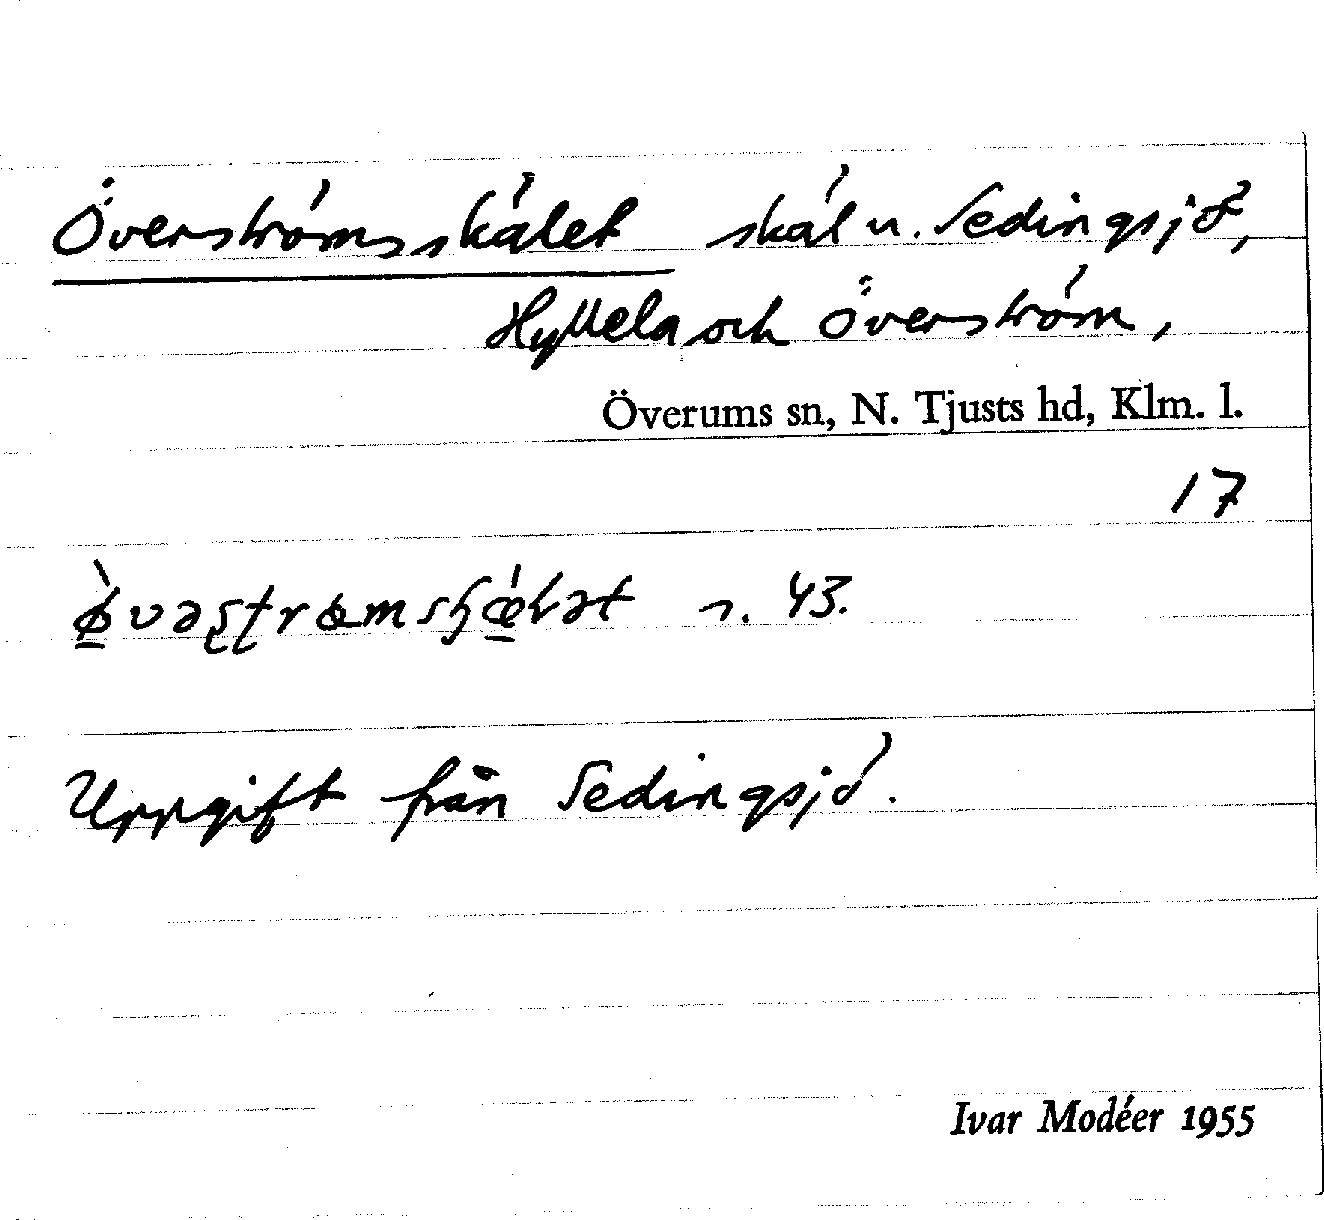 Överströmsskälet skäl u. Sedingsjö,
Hyllela och Överström,
Överums sn, N. Tjusts hd, Klm. l.
17
s. 43.
Uppgift från Sedingsjö.
Ivar Modéer 1955